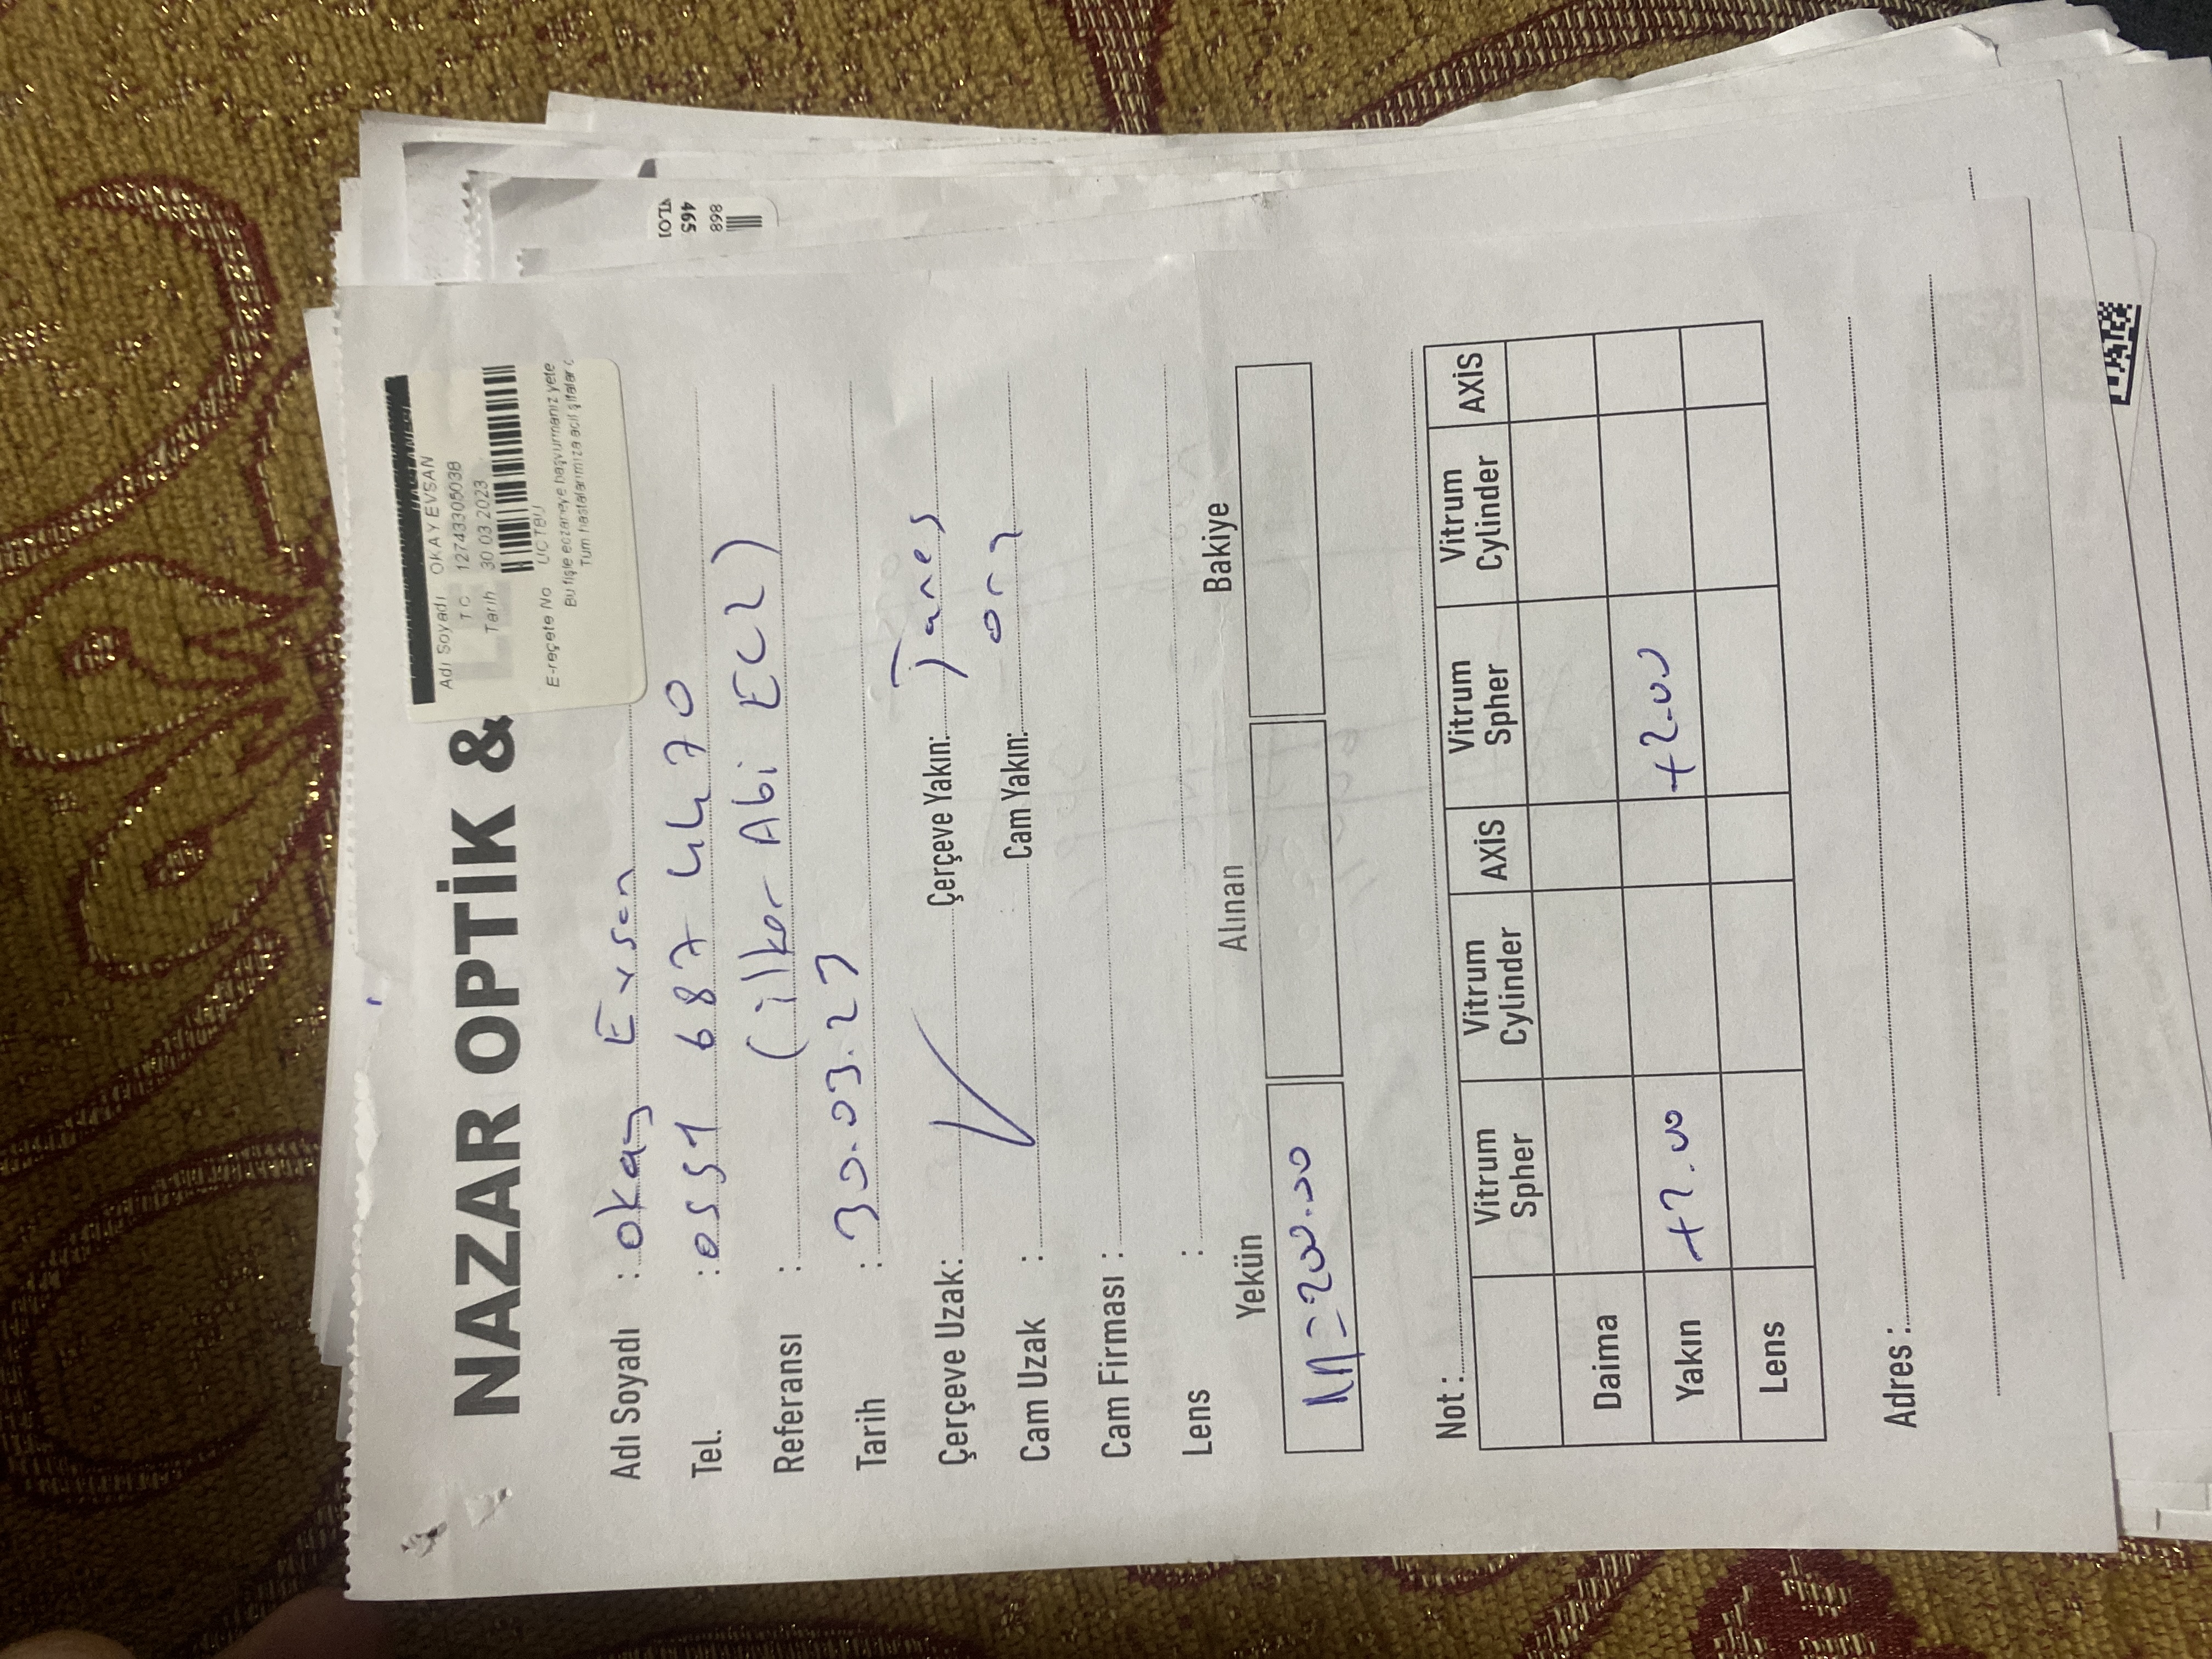 NAZAR OPTİK &
HASTANESİ
Adı Soyadı OKAY EVSAN
TC 12743305038
Tarih 30 03 2023
E-reçete No UCT8U
Bu fişle eczaneye başvurmanız yete
Tüm hastalarımıza acil şifalar
Adı Soyadı : Okay Evsan
Tel. : 0551 687 44 70
Referansı : (ilker Abi ECZ)
Tarih : 30.03.23
Çerçeve Uzak: Çerçeve Yakın:
Cam Uzak : Cam Yakın: org
Cam Firması :
Lens :
Yekün Alınan Bakiye
=200.00
Not :
Vitrum Spher Vitrum Cylinder AXİS Vitrum Spher Vitrum Cylinder AXİS
Daima
Yakın +2.00 +2.00
Lens
Adres :
465
868